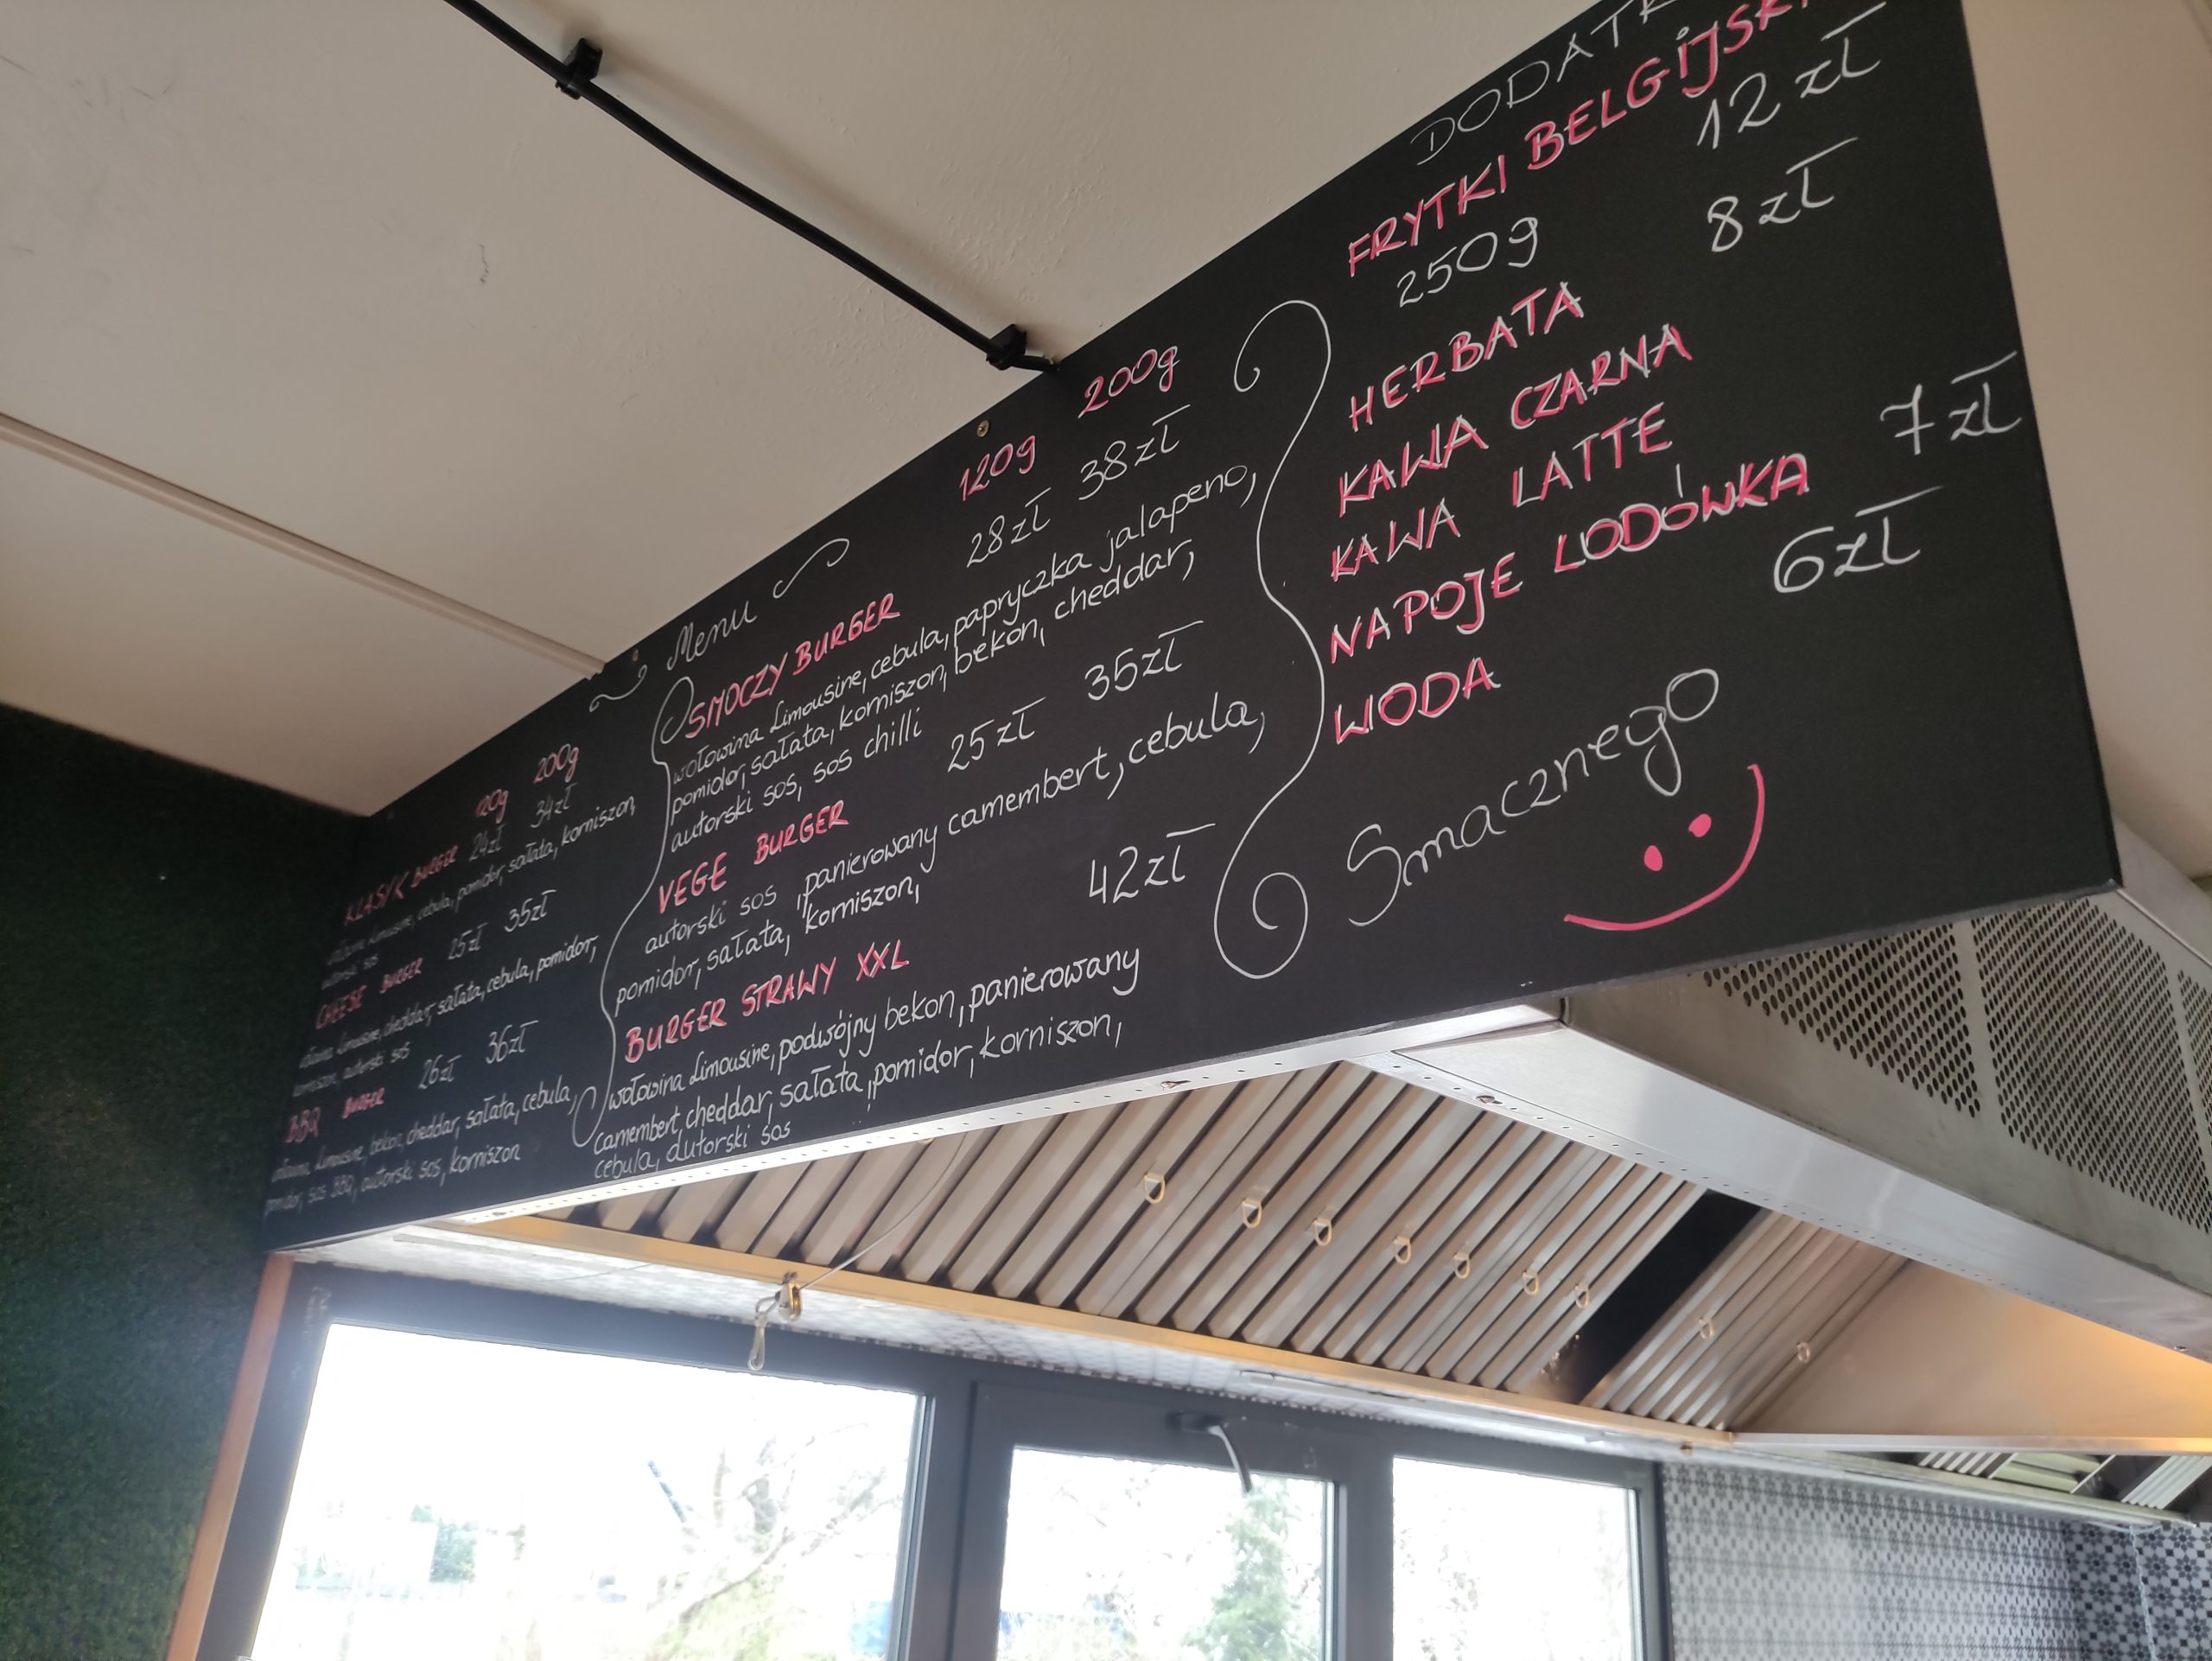 Menu
120g 200g
KLASYK BURGER 24zł 34zł
wołowina Limousine, cebula, pomidor, sałata, korniszon,
autorski sos
CHEESE BURGER 25zł 35zł
wołowina Limousine, cheddar, sałata, cebula, pomidor,
korniszon, autorski sos
BBQ BURGER 26zł 36zł
wołowina Limousine, bekon, cheddar, sałata, cebula,
pomidor, sos BBQ, autorski sos, korniszon
120g 200g
SMOCZY BURGER 28zł 38zł
wołowina Limousine, cebula, papryczka jalapeno,
pomidor, sałata, korniszon, bekon, cheddar,
autorski sos, sos chilli
VEGE BURGER 25zł 35zł
autorski sos, panierowany camembert, cebula,
pomidor, sałata, korniszon,
BURGER STRAWY XXL 42zł
wołowina Limousine, podwójny bekon, panierowany
camembert, cheddar, sałata, pomidor, korniszon,
cebula, autorski sos
DODATK
FRYTKI BELGIJSK
250g 12zł
HERBATA 8zł
KAWA CZARNA
KAWA LATTE
NAPOJE LODÓWKA 7zł
WODA 6zł
Smacznego